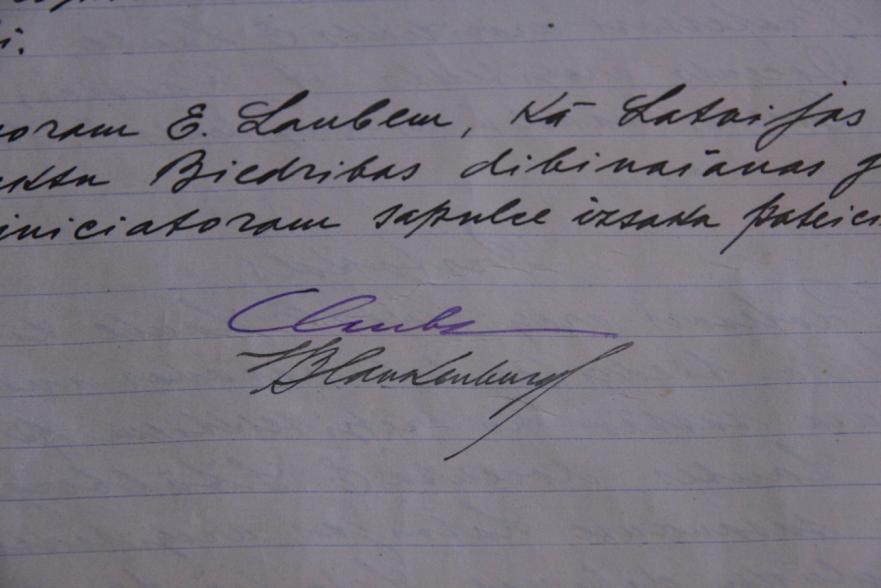 i.
oram E. Laubem, kā Latvijas
ektu Biedribas dibinašanas g
iniciatoram sapulce izsaka pateici
Laube
Blankenburg